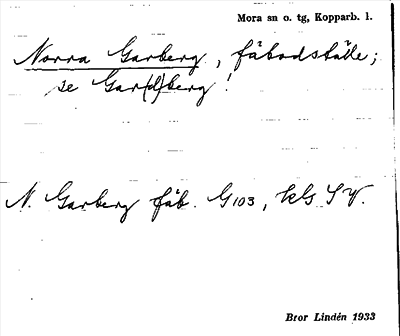 Mora sn o. tg, Kopparb. l.
Norra Garberg, fäbodställe;
se Gar(d)berg!
N. Garberg fäb. G103, kls SV.
Bror Lindén 1933